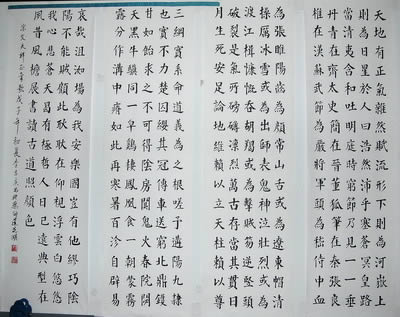 天地有正氣雜然賦流形下則為河嶽上
則為日星於人曰浩然沛乎塞蒼冥皇路
當清夷含和吐明庭時窮節乃見一一垂
丹青在齊太史簡在晉董狐筆在秦張良
椎在漢蘇武節為嚴將軍頭為嵇侍中血
為張睢陽齒為顏常山舌或為遼東帽清
操厲冰雪或為出師表鬼神泣壯烈或為
渡江楫慷慨吞胡羯或為擊賊笏逆豎頭
破裂是氣所磅礴凜烈萬古存當其貫日
月生死安足論地維賴以立天柱賴以尊
三綱實系命道義為之根嗟予遘陽九隸
也實不力楚囚纓其冠傳車送窮北鼎鑊
甘如飴求之不可得陰房闃鬼火春院閟
天黑牛驥同一皁鷄棲鳳凰食一朝蒙霧
露分作溝中瘠如此再寒暑百沴自辟易
哀哉沮洳場為我安樂國豈有他繆巧陰
陽不能賊顧此耿耿在仰視浮雲白悠悠
我心悲蒼天曷有極哲人日已遠典型在
夙昔風檐展書讀古道照顏色
宋文天祥正氣歌戊子年初夏